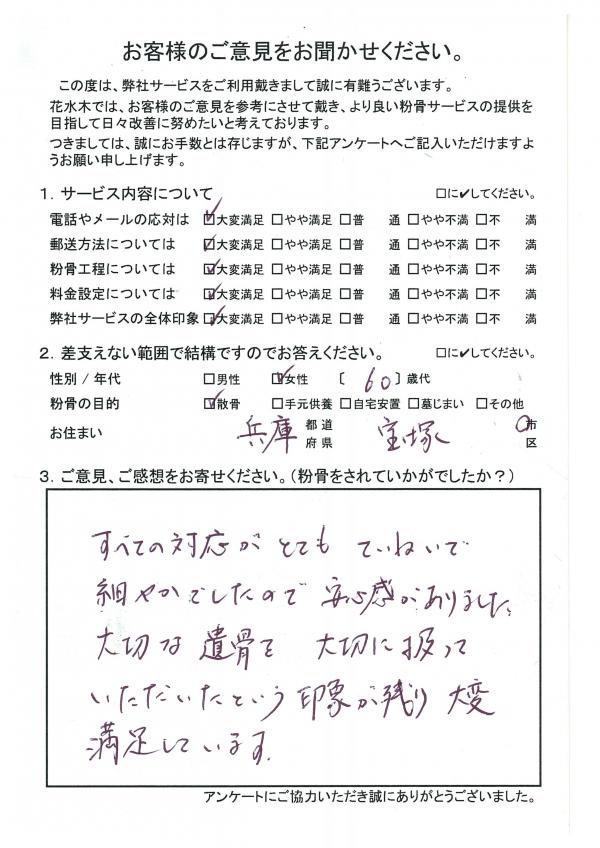 お客様のご意見をお聞かせください。
この度は、弊社サービスをご利用戴きまして誠に有難うございます。
花水木では、お客様のご意見を参考にさせて戴き、より良い粉骨サービスの提供を
目指して日々改善に努めたいと考えております。
つきましては、誠にお手数とは存じますが、下記アンケートへご記入いただけますよ
うお願い申し上げます。
1．サービス内容について □に✔してください。
電話やメールの応対は ☑大変満足 □やや満足 □普 通 □やや不満 □不 満
郵送方法については ☑大変満足 □やや満足 □普 通 □やや不満 □不 満
粉骨工程については ☑大変満足 □やや満足 □普 通 □やや不満 □不 満
料金設定については ☑大変満足 □やや満足 □普 通 □やや不満 □不 満
弊社サービスの全体印象 ☑大変満足 □やや満足 □普 通 □やや不満 □不 満
2．差支えない範囲で結構ですのでお答えください。 □に✔してください。
性別 / 年代 □男性 ☑女性 〔 60 〕歳代
粉骨の目的 ☑散骨 □手元供養 □自宅安置 □墓じまい □その他
お住まい 兵庫 都道府県 宝塚 市区
3．ご意見、ご感想をお寄せください。（粉骨をされていかがでしたか？）
すべての対応が とても ていねいで
細やかでしたので 安心感がありました。
大切な 遺骨を 大切に扱って
いただいたという 印象が残り 大変
満足しています。
アンケートにご協力いただき誠にありがとうございました。